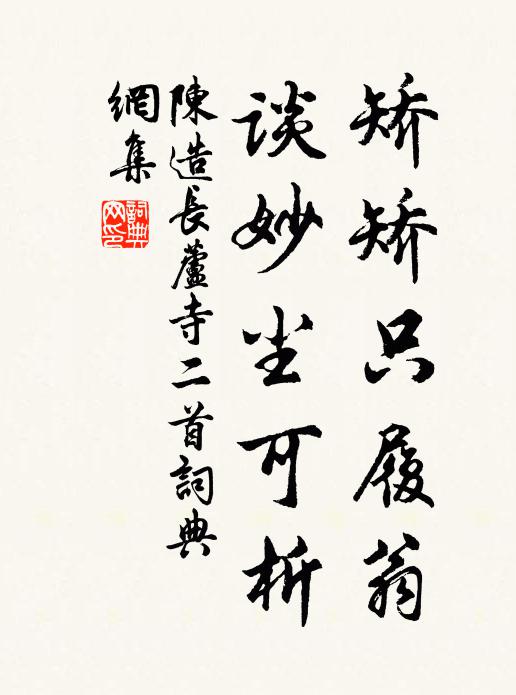 矫矫只履翁
谈妙尘可析
陳造長蘆寺二首詞典
網集
詞典网印